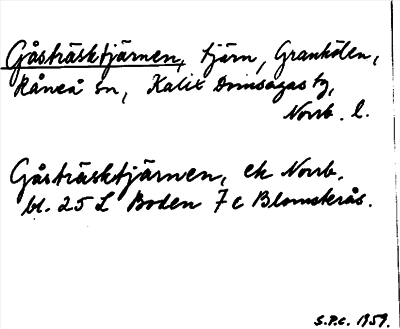 Gåsträsktjärnen, tjärn, Granhölen,
Råneå sn, Kalix Domsagas tg,
Norrb. l.
Gåsträsktjärnen, ek Norrb.
bl. 25 L Boden 7 c Blomsterås.
S.P.C. 1959.